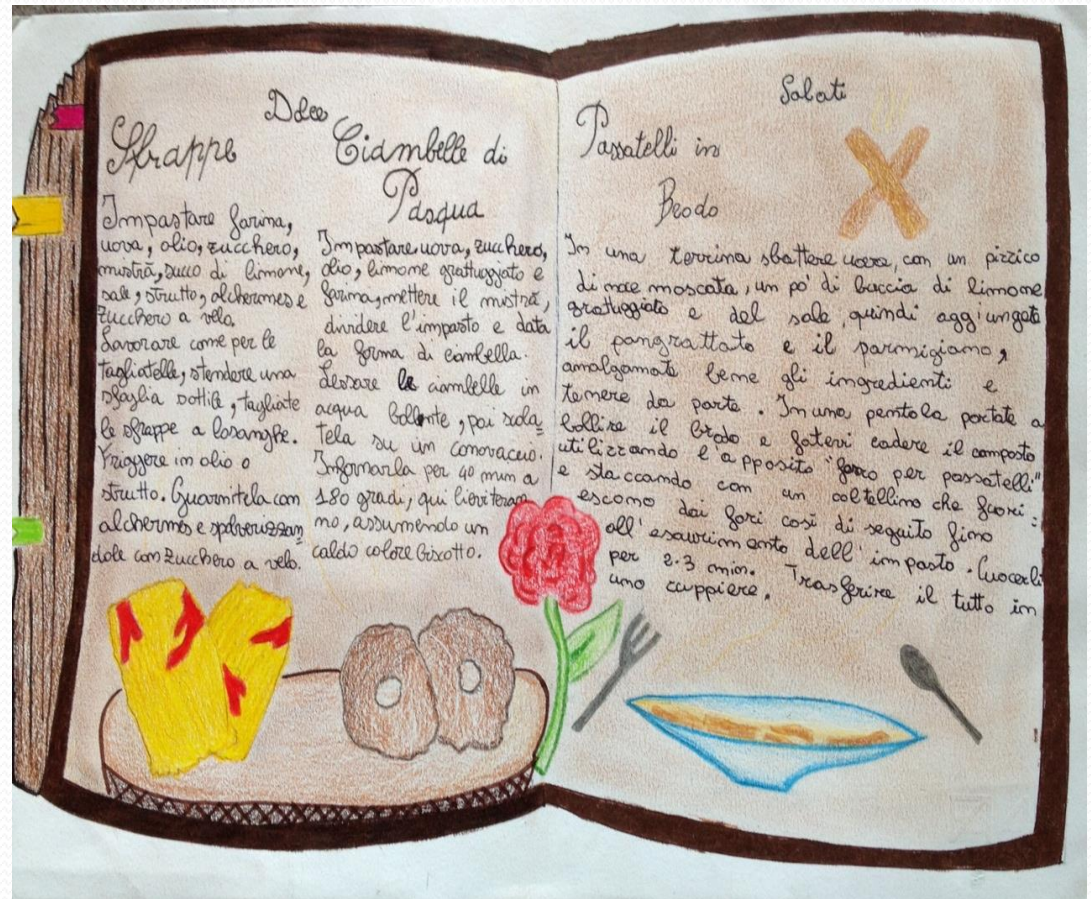 Dolce
Sfrappe
Impastare farina,
uova, olio, zucchero,
mistrà, succo di limone,
sale, strutto, alchermes e
zucchero a velo.
Lavorare come per le
tagliatelle, stendere una
sfoglia sottile, tagliate
le sfrappe a losanghe.
Friggere in olio o
strutto. Guarnitela con
alchermes e spolverizzan
dole con zucchero a velo.
Ciambelle di
Pasqua
Impastare uova, zucchero,
olio, limone grattuggiato e
farina, mettere il mistrà,
dividere l'impasto e data
la forma di ciambella.
Lessare le ciambelle in
acqua bollente, poi scola
tela su un canovaccio.
Infornarla per 40 min a
180 gradi, qui lieviteran
no, assumendo un
caldo colore biscotto.
Salati
Passatelli in
Brodo
In una terrina sbattere uova, con un pizzico
di noce moscata, un po' di buccia di limone
grattuggiato e del sale, quindi agg'ungete
il pangrattato e il parmigiano,
amalgamate bene gli ingredienti e
tenere da parte. In una pentola portate a
bollire il brodo e fatevi cadere il composto
utilizzando l'apposito "ferro per passatelli"
e staccando con un coltellino che fuori:
escono dai fori così di seguito fino
all'esaurimento dell'impasto. Cuocerli
per 2-3 min. Trasferire il tutto in
una zuppiere.